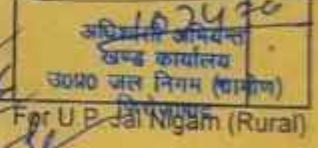 अधिशासी अभियन्ता
खण्ड कार्यालय
उ0प्र0 जल निगम (ग्रामीण)
For U P Jal Nigam (Rural)